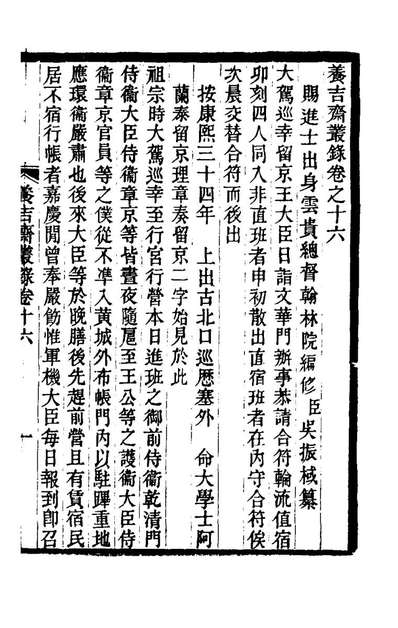 養吉齋叢錄卷之十六
賜進士出身雲貴總督翰林院編修臣吳振棫纂
大駕巡幸留京王大臣日詣文華門辦事恭請合符輪流值宿
卯刻四人同入非直班者申初散出直宿班者在內守合符俟
次晨交替合符而後出
按康熙三十四年 上出古北口巡歷塞外 命大學士阿
蘭泰留京理章奏留京二字始見於此
祖宗時大駕巡幸至行宮行營本日進班之御前侍衞乾清門
侍衞大臣侍衞章京等皆晝夜隨扈至王公等之護衞大臣侍
衞章京官員等之僕從不準入黃城外布帳門內以駐蹕重地
應環衞嚴肅也後來大臣等於晚膳後先趕前營且有賃宿民
居不宿行帳者嘉慶閒曾奉嚴飭惟軍機大臣每日報到卽召
養吉齋叢錄卷十六
一